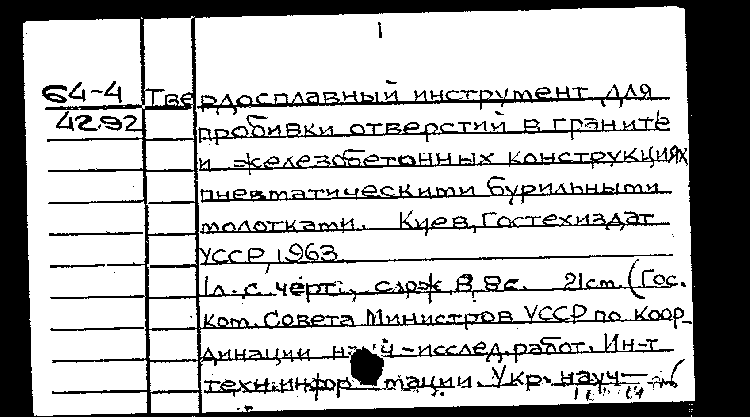 1
64-4 Твердосплавный инструмент для
4292 пробивки отверстий в граните
и железобетонных конструкциях
пневматическими бурильными
молотками. Киев, Гостехиздат
УССР, 1963
1л. с черт., слож. в 8с. 21cm. (Гос.
ком. Совета Министров УССР по коор-
динации науч-исслед. работ. Ин-т
техн. информации. Укр. науч-